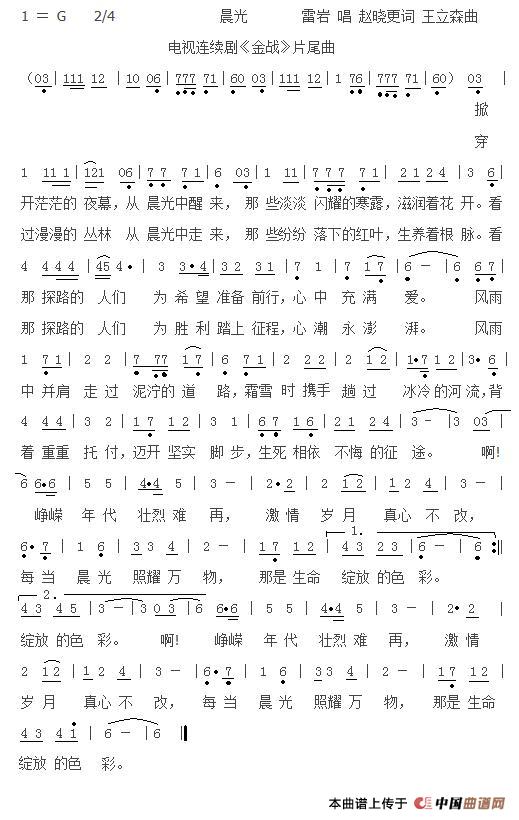 1 = G 2/4 晨光 雷岩 唱 赵晓更词 王立森曲
电视连续剧《金战》片尾曲
（03 | 111 12 | 10 06 | 777 71 | 60 03 | 111 12 | 10 06 | 777 777 71 | 60） 03 |
掀
穿
1 11 1 | 121 06 | 7 7 7 1 | 6 03 | 1 11 | 77 7 76 | 21 21 24 | 3 3 6 |
开茫茫的 夜幕，从 晨光中醒 来，那 些淡淡 闪耀的寒露，滋润着花 开。看
过漫漫的 丛林 从 晨光中走 来，那 些纷纷 落下的红叶，生养着根 脉。看
4 4 4 4 | 45 4• | 3 3•4 | 32 31 | 7 1 | 7 17 | 6 — | 6 77 |
那 探路的 人们 为 希 望 准备 前行，心 中 充 满 爱。 风雨
那 探路的 人们 为 胜 利 踏上 征程，心 潮 永 澎 湃。 风雨
1 71 | 2 2 | 7 77 17 | 6 71 | 2 22 | 2 12 | 1•7 12 | 3• 6 |
中 并肩 走 过 泥泞的 道 路，霜雪 时 携手 趟 过 冰冷 的河 流，背
4 44 | 3 2 | 17 12 | 3 1 | 67 16 | 21 24 | 3 — | 3 03 |
着 重重 托 付，迈开 坚实 脚 步，生死 相依 不悔 的征 途。 啊!
6 6•6 | 5 5 | 4•4 5 | 3 — | 2• 2 | 2 12 | 12 4 | 3 — |
峥嵘 年 代 壮烈 难 再， 激 情 岁 月 真心 不 改，
6• 7 | 1 6 | 33 4 | 2 — | 17 12 | 1. 43 23 | 6 — | 6 :||
每 当 晨 光 照耀 万 物， 那是 生命 绽放 的色 彩。
2. 43 45 | 3 — | 3 03 | 6 6•6 | 5 5 | 4•4 5 | 3 — | 2• 2 |
绽放 的色 彩。 啊! 峥嵘 年 代 壮烈 难 再， 激 情
2 12 | 12 4 | 3 — | 6• 7 | 1 6 | 33 4 | 2 — | 17 12 |
岁 月 真心 不 改， 每 当 晨 光 照耀 万 物， 那是 生命
43 41 | 6 — | 6 ||
绽放 的色 彩。
本曲谱上传于 中国曲谱网